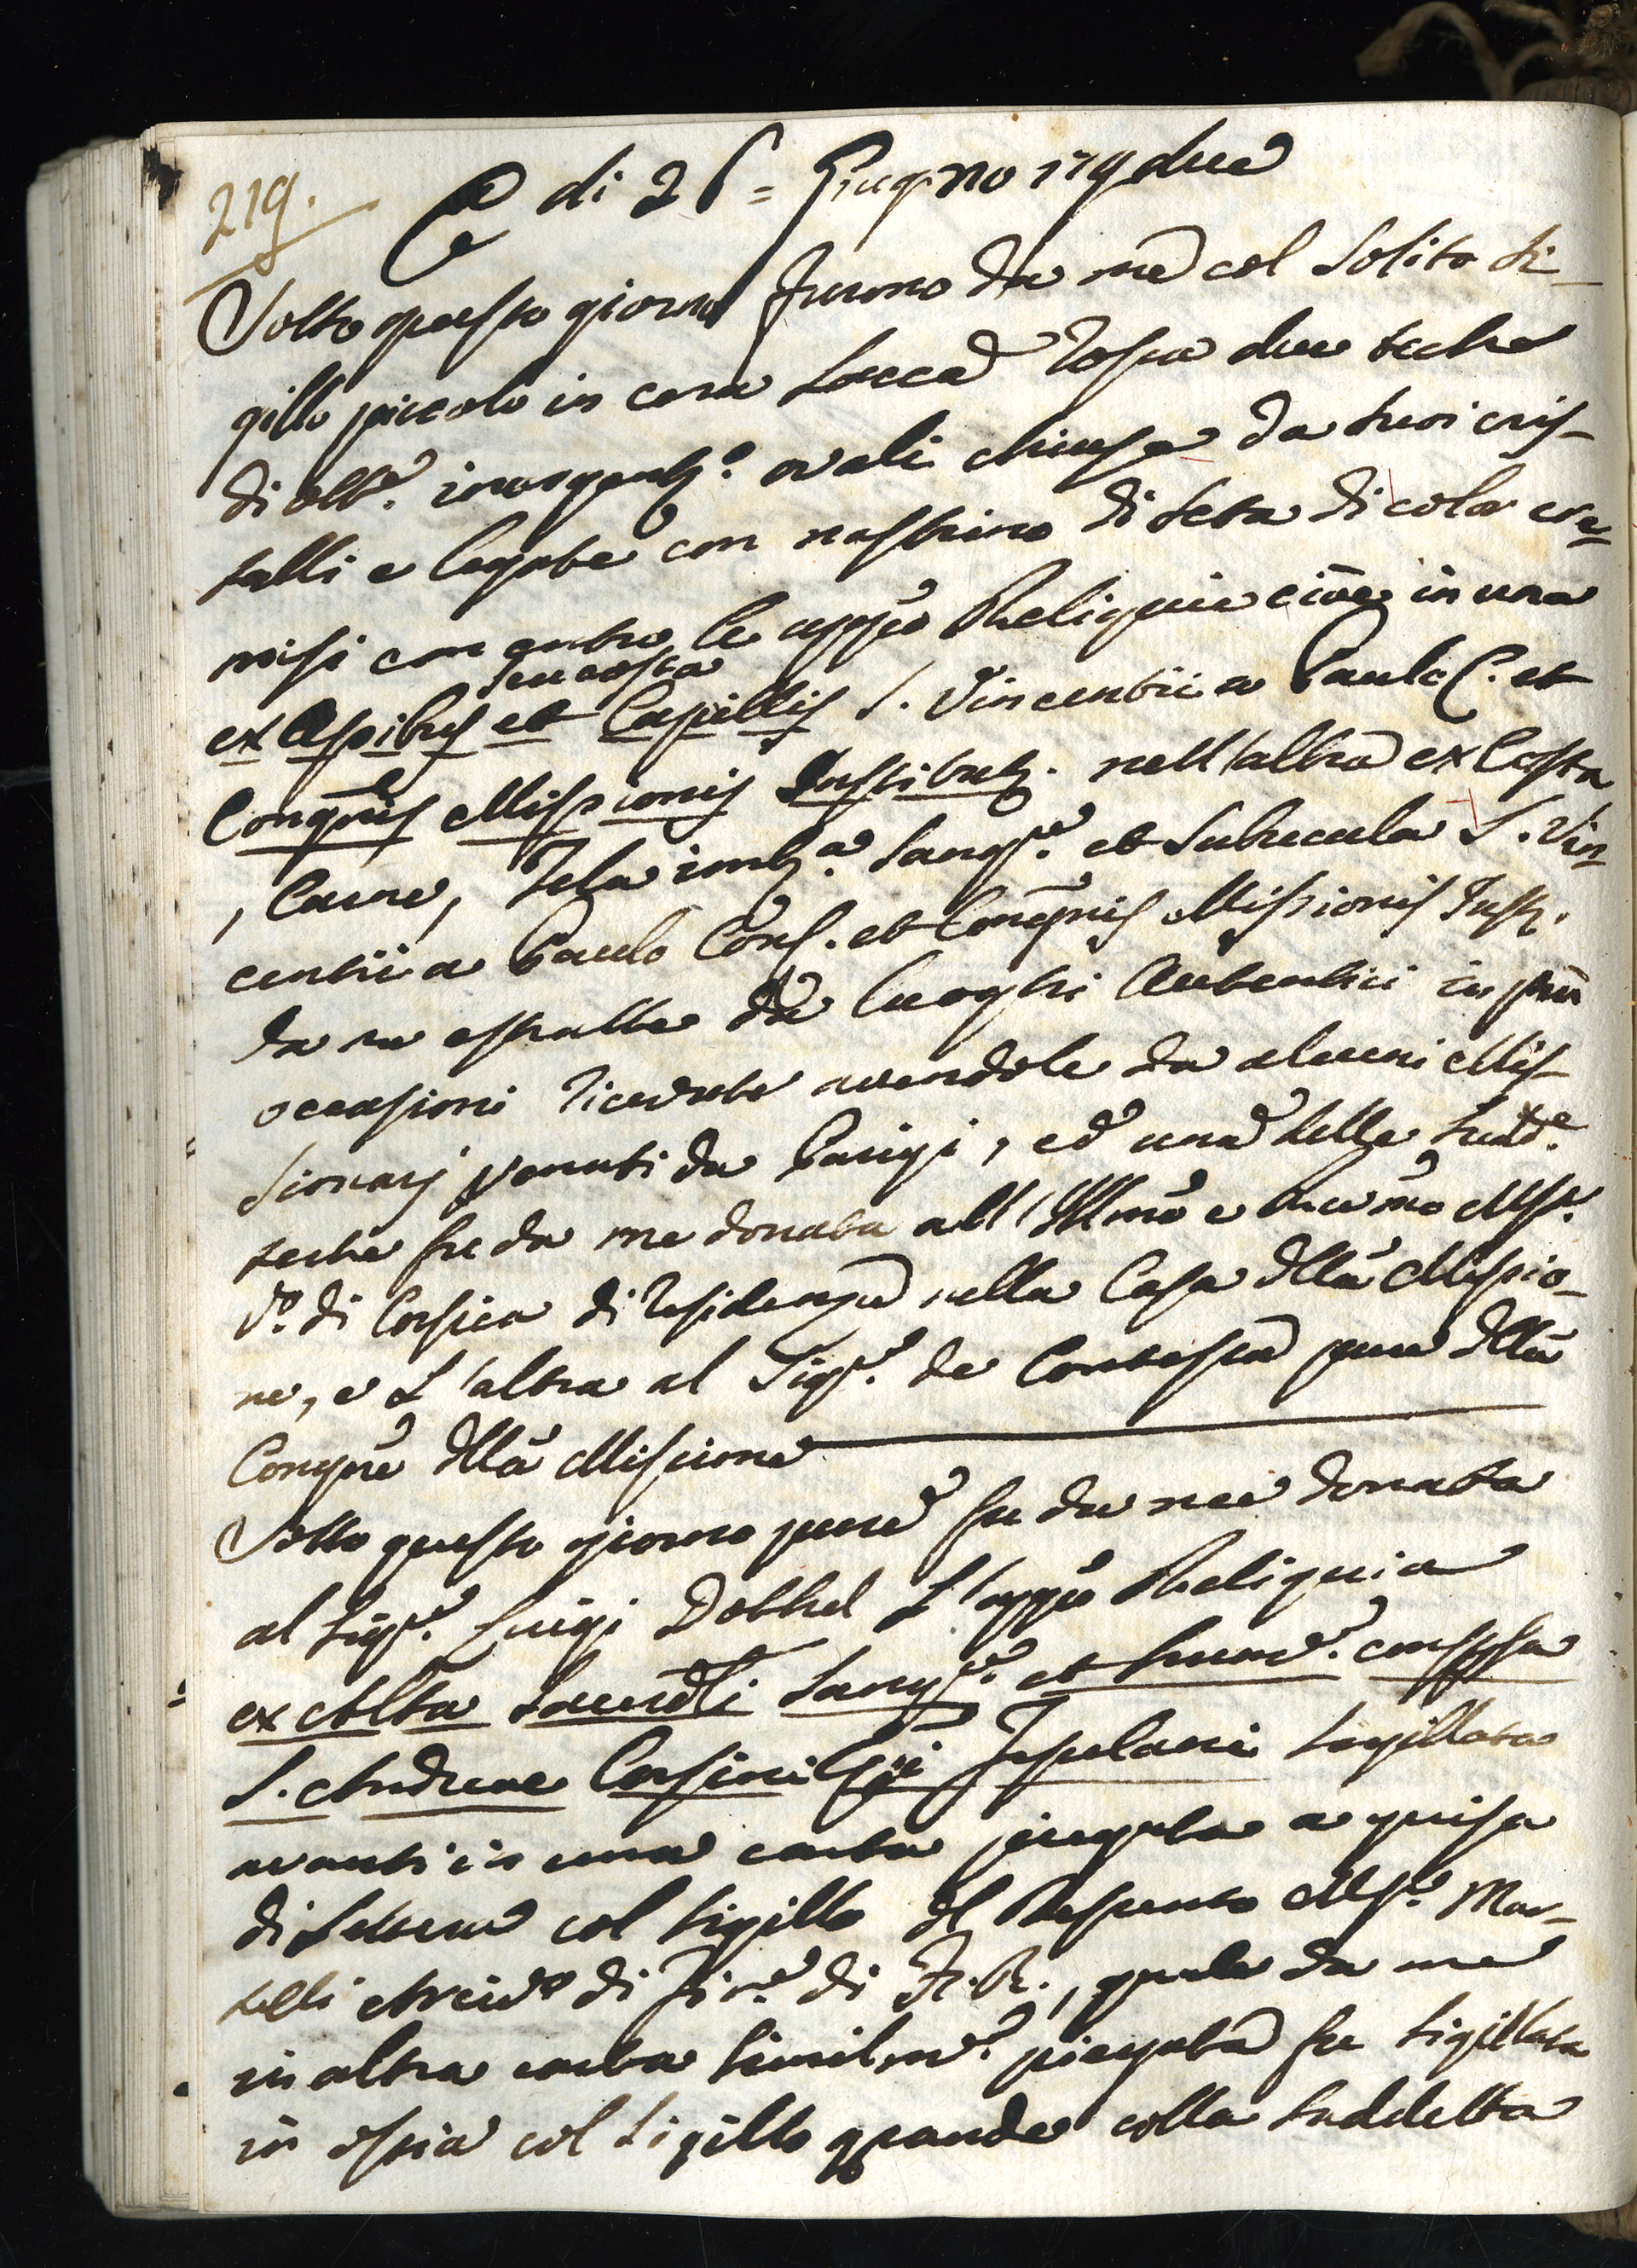 219.
A di 26 = Giugno 179due
Sotto questo giorno furono da me col solito si-
gillo piccolo in cera lacca rossa due teche
di ott.e inargent.e ovali chiuse da suoi cris-
talli e legate con nastrino di seta di color cre-
misi con entro le app.o Reliquie cioè in una
seu costa
ex Ossibus et Capillis S. Vincentii a Paulo C. et
Congñis Missionis Institut. nell'altra ex Costa
, Carne, Tela imb.a Sang.e et Subucula S. Vin-
centii a Paulo Conf. et Congñis Missionis Inst.
da me estratte da luoghi Autentici in più
occasioni ricevute avendole da alcuni Mis-
sionarj venuti da Parigi, ed una delle sud.e
teche fu da me donata all'Illmo e Rev̄mo Msr.
V.o di Corsica di residenza nella Casa dlla Missio-
ne, e l'altra al Sig.r de Contessa pure dlla
Congne dlla Missione
Sotto questo giorno pure fu da me donata
al Sig.r Luigi Dobhel l'app.o Reliquia
ex Alba Sacerdli Sang.e et humor. conspersa
S. Andreae Corsini Epi Fesulani sigillata
avanti in una carta piegata a guisa
di lettera col sigillo dl Defunto Msr. Mar-
telli Arciv.o di Fir.e di F.R., quale da me
in altra carta similm.e piegata fu sigillata
in ostia col sigillo grande colla suddetta